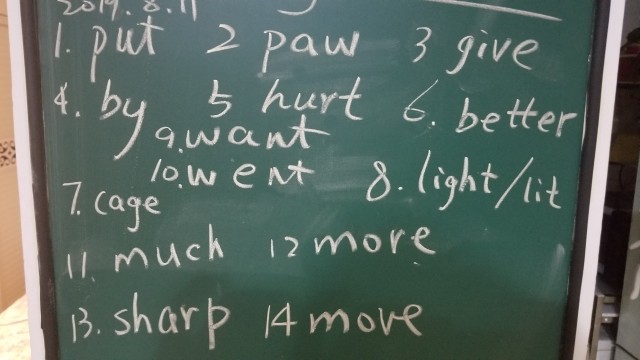 2019.8.11
1. put 2 paw 3 give
4. by 5 hurt 6. better
9. want
10. went
7. cage 8. light/lit
11. much 12 more
13. sharp 14 move